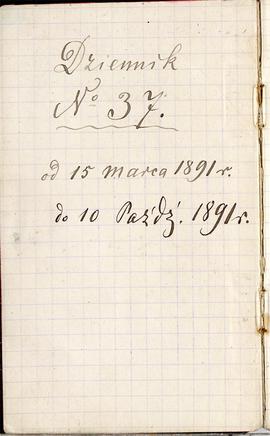 Dziennik
No 37.
od 15 marca 1891 r.
do 10 Paźdź. 1891 r.